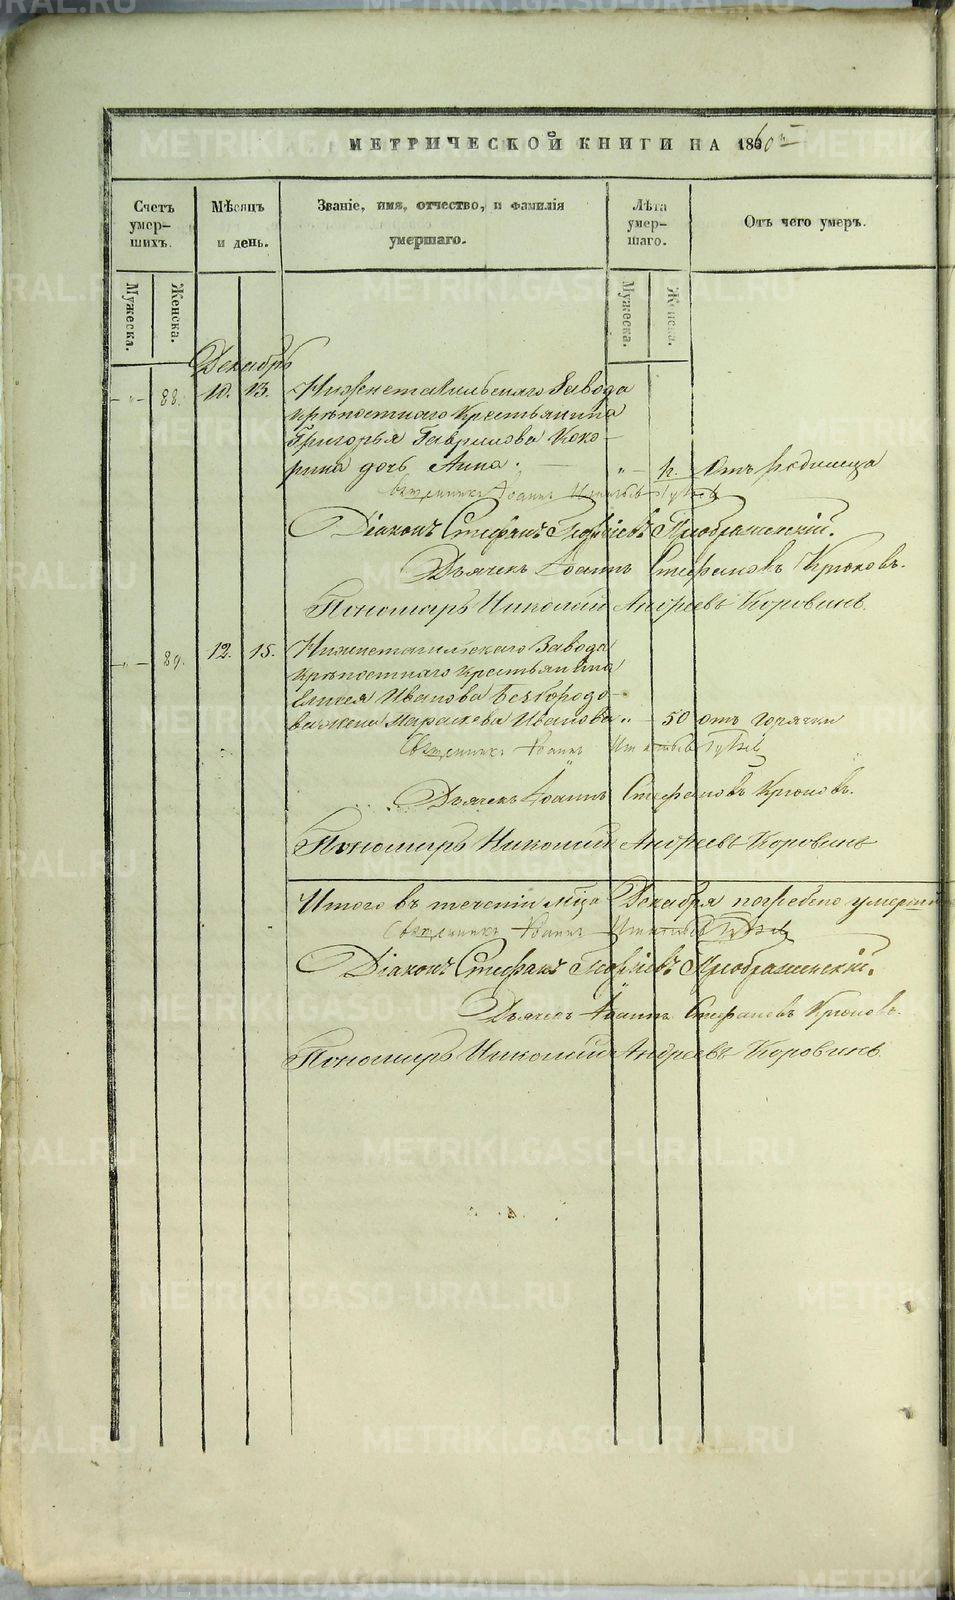 МЕТРИЧЕСКОЙ КНИГИ НА 1860й
Счетъ умер-шихъ.
Мѣсяцъ и день.
Званіе, имя, отчество, и фамилія умершаго.
Лѣта умер-шаго.
Отъ чего умеръ.
Мужеска.
Женска.
Мужеска.
Женска.
Декабрь
88. 10. 13. Нижнетагильскаго Завода
крѣпостнаго Крестьянина
Григорья Гаврилова Коко-
рина дочь Анна. " от родимца
Священникъ Іоаннъ
Діаконъ Стефанъ Георгіевъ Преображенскій.
Дьячекъ Іоаннъ Стефановъ Крюковъ.
Пономарь Николай Андреевъ Коровинъ.
89. 12. 15. Нижнетагильскаго Завода
крѣпостнаго крестьянина
Елисея Иванова Безбородо-
ва жена Параскева Иванова " 50 отъ горячки
Священникъ Іоаннъ
Дьячекъ Іоаннъ Стефановъ Крюковъ.
Пономарь Николай Андреевъ Коровинъ
Итого въ теченіи мѣца Декабря погребено умерши
Священникъ Іоаннъ
Діаконъ Стефанъ Георгіевъ Преображенскій.
Дьячекъ Іоаннъ Стефановъ Крюковъ.
Пономарь Николай Андреевъ Коровинъ.
METRIKI.GASO-URAL.RU